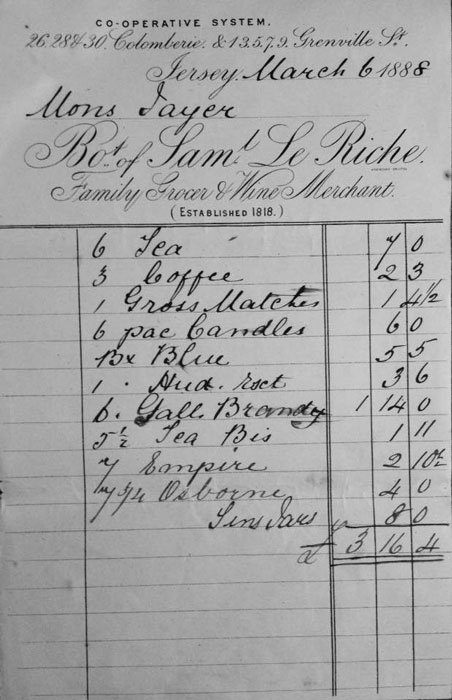 CO-OPERATIVE SYSTEM.
26.28&30. Colomberie. & 1.3.5.7.9. Grenville St.
Jersey. March 6 1888
Mons Tayer
Bot. of Saml. Le Riche.
Family Grocer & Wine Merchant.
(ESTABLISHED 1818.)
6 Tea 7 0
3 Coffee 2 3
1 Gross Matches 1 4½
6 pac Candles 6 0
Bx Blue 5 5
1 . 3 6
6. Gall. Brandy 1 14 0
5½ Tea Bis 1 11
7 Empire 2 10½
7 3/4 Osborne 4 0
Jars 8 0
£ 3 16 4